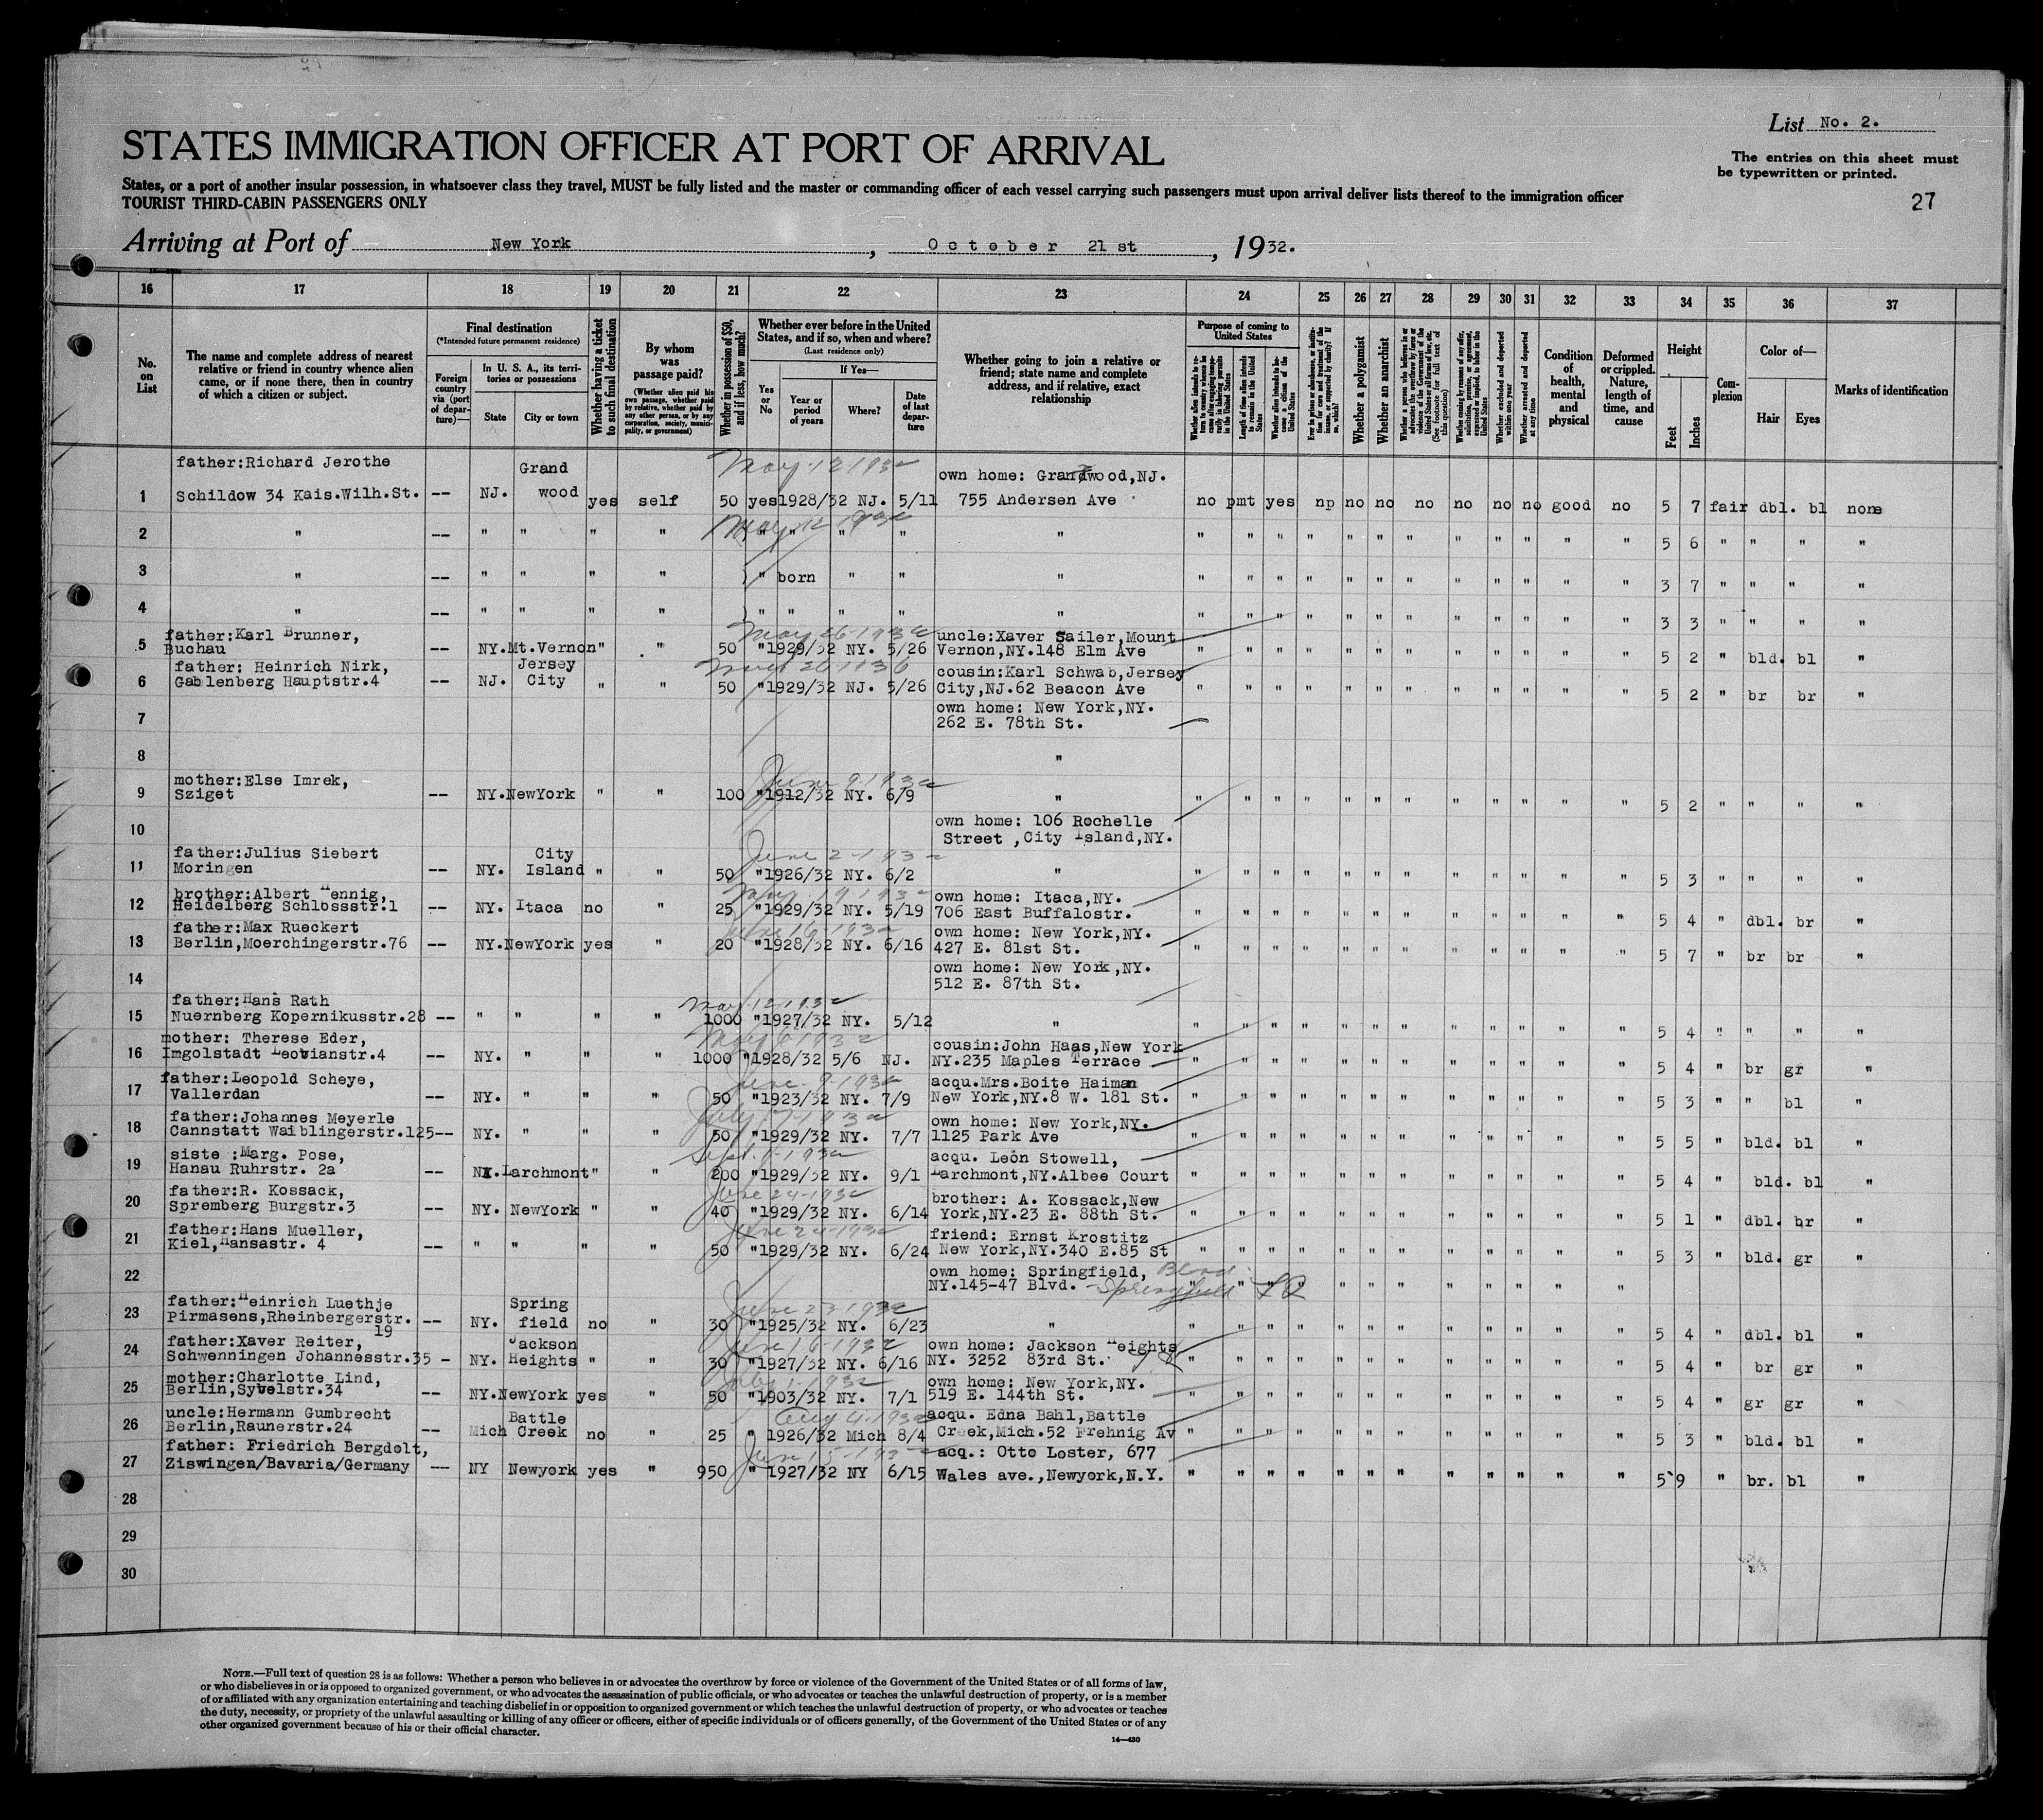 List No. 2.
STATES IMMIGRATION OFFICER AT PORT OF ARRIVAL
The entries on this sheet must
be typewritten or printed.
States, or a port of another insular possession, in whatsoever class they travel, MUST be fully listed and the master or commanding officer of each vessel carrying such passengers must upon arrival deliver lists thereof to the immigration officer
TOURIST THIRD-CABIN PASSENGERS ONLY
27
Arriving at Port of New York, October 21 st, 1932.
16 17 18 19 20 21 22 23 24 25 26 27 28 29 30 31 32 33 34 35 36 37
No. on List
The name and complete address of nearest relative or friend in country whence alien came, or if none there, then in country of which a citizen or subject.
Final destination
(*Intended future permanent residence)
Foreign country via (port of departure)—
In U. S. A., its territories or possessions
State
City or town
Whether having a ticket to such final destination
By whom was passage paid?
(Whether alien paid his own passage, whether paid by relative, whether paid by any other person, or by any corporation, society, municipality, or government)
Whether in possession of $50, and if less, how much?
Whether ever before in the United States, and if so, when and where?
(Last residence only)
Yes or No
If Yes—
Year or period of years
Where?
Date of last departure
Whether going to join a relative or friend; state name and complete address, and if relative, exact relationship
Purpose of coming to United States
Length of time alien intends to remain in the United States
Whether alien intends to become a citizen of the United States
Whether a polygamist
Whether an anarchist
Whether excluded and deported within one year
Whether arrested and deported at any time
Condition of health, mental and physical
Deformed or crippled. Nature, length of time, and cause
Height
Feet
Inches
Complexion
Color of—
Hair
Eyes
Marks of identification
father:Richard Jerothe Grand May-12 1932 own home: Grandwood,NJ.
1 Schildow 34 Kais.Wilh.St. -- NJ. wood yes self 50 yes 1928/32 NJ. 5/11 755 Andersen Ave no pmt yes np no no no no no no good no 5 7 fair dbl. bl none
May 12 1932
2 " -- " " " " " " " " " " " " " " " " " " " " " 5 6 " " " "
3 " -- " " " " " born " " " " " " " " " " " " " " " 3 7 " " " "
4 " -- " " " " " " " " " " " " " " " " " " " " " 3 3 " " " "
father:Karl Brunner, May 26-1932 uncle:Xaver Sailer,Mount
5 Buchau -- NY. Mt.Vernon " " 50 " 1929/32 NY. 5/26 Vernon,NY.148 Elm Ave " " " " " " " " " " " " 5 2 " bld. bl "
father: Heinrich Nirk, Jersey cousin:Karl Schwab,Jersey
6 Gablenberg Hauptstr.4 -- NJ. City " " 50 " 1929/32 NJ. 5/26 City,NJ.62 Beacon Ave " " " " " " " " " " " " 5 2 " br br "
own home: New York,NY.
7 262 E. 78th St.
8 "
mother:Else Imrek, June 9-1932
9 Sziget -- NY. NewYork " " 100 " 1912/32 NY. 6/9 " " " " " " " " " " " " " 5 2 " " " "
own home: 106 Rochelle
10 Street ,City Island,NY.
father:Julius Siebert City June 2-1932
11 Moringen -- NY. Island " " 50 " 1926/32 NY. 6/2 " " " " " " " " " " " " " 5 3 " " " "
brother:Albert Hennig, May 19 1932 own home: Itaca,NY.
12 Heidelberg Schlossstr.1 -- NY. Itaca no " 25 " 1929/32 NY. 5/19 706 East Buffalostr. " " " " " " " " " " " " 5 4 " dbl. br "
father:Max Rueckert June 16-1932 own home: New York,NY.
13 Berlin,Moerchingerstr.76 -- NY. NewYork yes " 20 " 1928/32 NY. 6/16 427 E. 81st St. " " " " " " " " " " " " 5 7 " br br "
own home: New York,NY.
14 512 E. 87th St.
father:Hans Rath May-12-1932
15 Nuernberg Kopernikusstr.28 -- " " " " 1000 " 1927/32 NY. 5/12 " " " " " " " " " " " " " 5 4 " " " "
mother: Therese Eder, May 6 1932 cousin:John Haas,New York
16 Imgolstadt -- NY. " " " 1000 " 1928/32 5/6 NJ. NY.235 Maples Terrace " " " " " " " " " " " " 5 4 " br gr "
father:Leopold Scheye, June-9-1932 acqu.Mrs.Boite Haiman
17 Vallerdan -- NY. " " " 50 " 1923/32 NY. 7/9 New York,NY.8 W. 181 St. " " " " " " " " " " " " 5 3 " " bl "
father:Johannes Meyerle own home: New York,NY.
18 Cannstatt Waiblingerstr.125-- NY. " " " 50 " 1929/32 NY. 7/7 1125 Park Ave " " " " " " " " " " " " 5 5 " bld. bl "
siste :Marg. Pose, Sept.1-1932 acqu. Leon Stowell,
19 Hanau Ruhrstr. 2a -- NY. Larchmont " " 200 " 1929/32 NY. 9/1 Larchmont,NY.Albee Court " " " " " " " " " " " " 5 4 " bld. bl "
father:R. Kossack, June 24-1932 brother: A. Kossack,New
20 Spremberg Burgstr.3 -- NY. NewYork " " 40 " 1929/32 NY. 6/14 York,NY.23 E. 88th St. " " " " " " " " " " " " 5 1 " dbl. br "
father:Hans Mueller, June 24-1932 friend: Ernst Krostitz
21 Kiel,Hansastr. 4 -- " " " " 50 " 1929/32 NY. 6/24 New York,NY.340 E.85 St " " " " " " " " " " " " 5 3 " bld. gr "
own home: Springfield, Blvd.
22 NY.145-47 Blvd. -Springfield " " " " " " " " " " " "
father:Heinrich Luethje Spring June 23 1932
23 Pirmasens,Rheinbergerstr. 19 -- NY. field no " 30 " 1925/32 NY. 6/23 " " " " " " " " " " " " " 5 4 " dbl. bl "
father:Xaver Reiter, Jackson June 16-1932 own home: Jackson Heights
24 Schwenningen Johannesstr.35 - NY. Heights " " 30 " 1927/32 NY. 6/16 NY. 3252 83rd St. " " " " " " " " " " " " 5 4 " br gr "
mother:Charlotte Lind, July 1-1932 own home: New York,NY.
25 Berlin,Sybelstr.34 -- NY. NewYork yes " 50 " 1903/32 NY. 7/1 519 E. 144th St. " " " " " " " " " " " " 5 4 " gr gr "
uncle:Hermann Gumbrecht Battle Aug 4-1932 acqu. Edna Bahl,Battle
26 Berlin,Raunerstr.24 -- Mich Creek no " 25 " 1926/32 Mich 8/4 Creek,Mich.52 Frehnig Av " " " " " " " " " " " " 5 3 " bld. bl "
father: Friedrich Bergdolt, June 15-1932 acq.: Otto Loster, 677
27 Ziswingen/Bavaria/Germany -- NY Newyork yes " 950 " 1927/32 NY 6/15 Wales ave.,Newyork,N.Y. " " " " " " " " " " " " 5 9 " br. bl "
28
29
30
NOTE.—Full text of question 28 is as follows: Whether a person who believes in or advocates the overthrow by force or violence of the Government of the United States or of all forms of law,
or who disbelieves in or is opposed to organized government, or who advocates the assassination of public officials, or who advocates or teaches the unlawful destruction of property, or is a member
of or affiliated with any organization entertaining and teaching disbelief in or opposition to organized government or which teaches the unlawful destruction of property, or who advocates or teaches
the duty, necessity, or propriety of the unlawful assaulting or killing of any officer or officers, either of specific individuals or of officers generally, of the Government of the United States or of any
other organized government because of his or their official character.
14—430